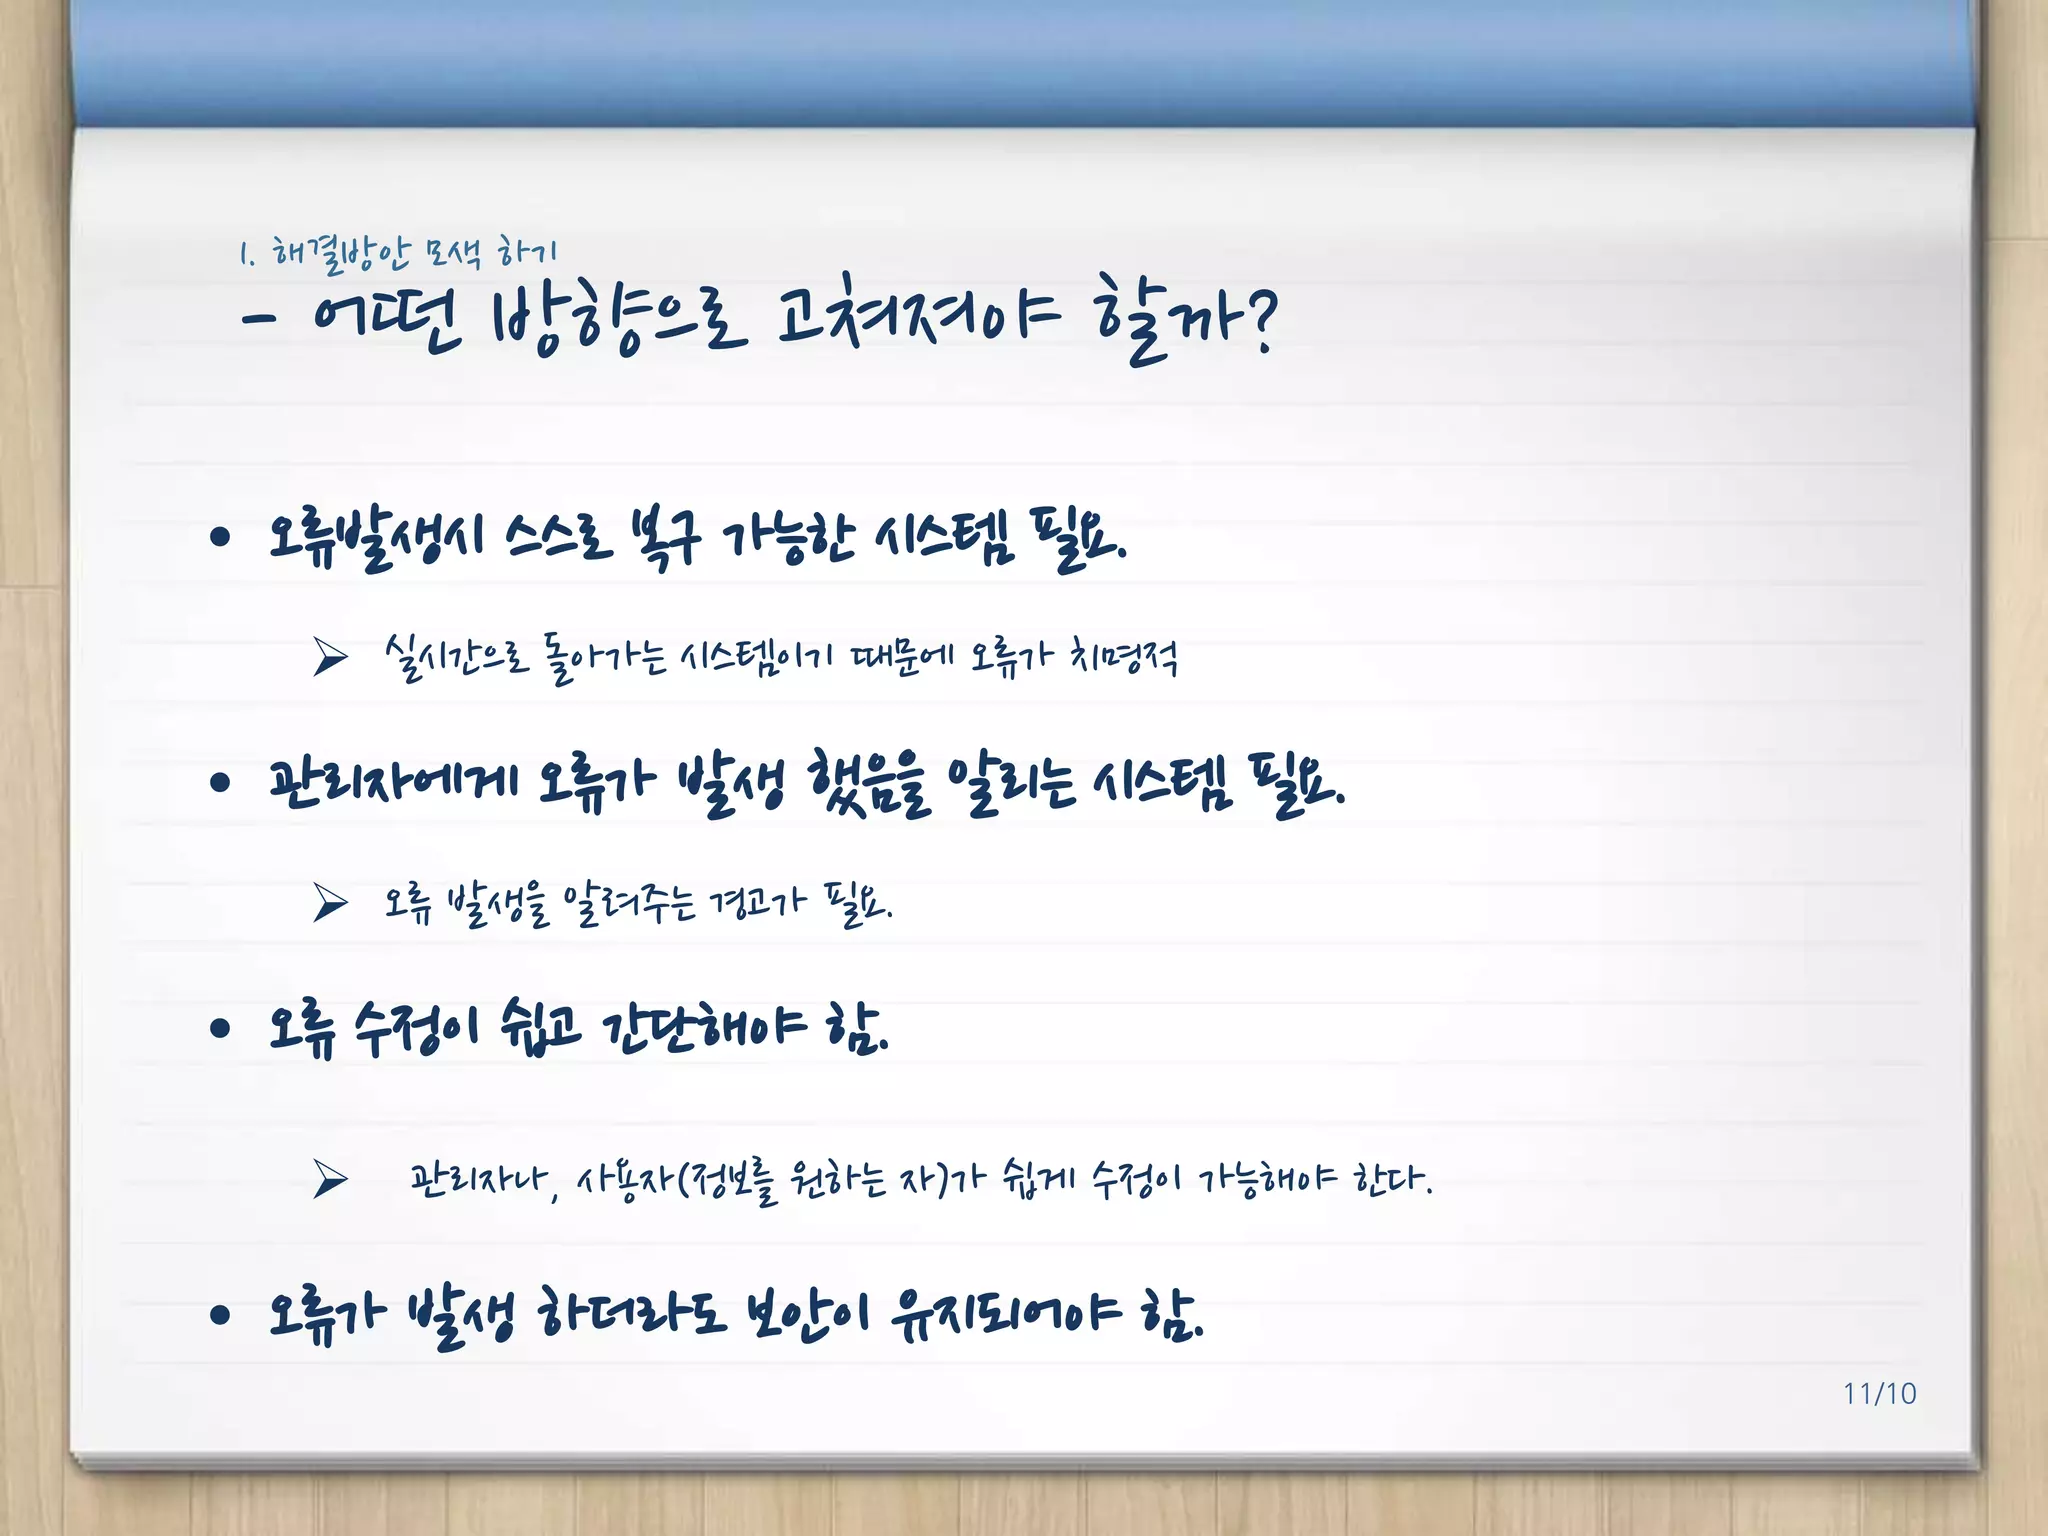 1. 해결방안 모색 하기
- 어떤 방향으로 고쳐져야 할까?
• 오류발생시 스스로 복구 가능한 시스템 필요.
➢ 실시간으로 돌아가는 시스템이기 때문에 오류가 치명적
• 관리자에게 오류가 발생 했음을 알리는 시스템 필요.
➢ 오류 발생을 알려주는 경고가 필요.
• 오류 수정이 쉽고 간단해야 함.
➢ 관리자나, 사용자(정보를 원하는 자)가 쉽게 수정이 가능해야 한다.
• 오류가 발생 하더라도 보안이 유지되어야 함.
11/10